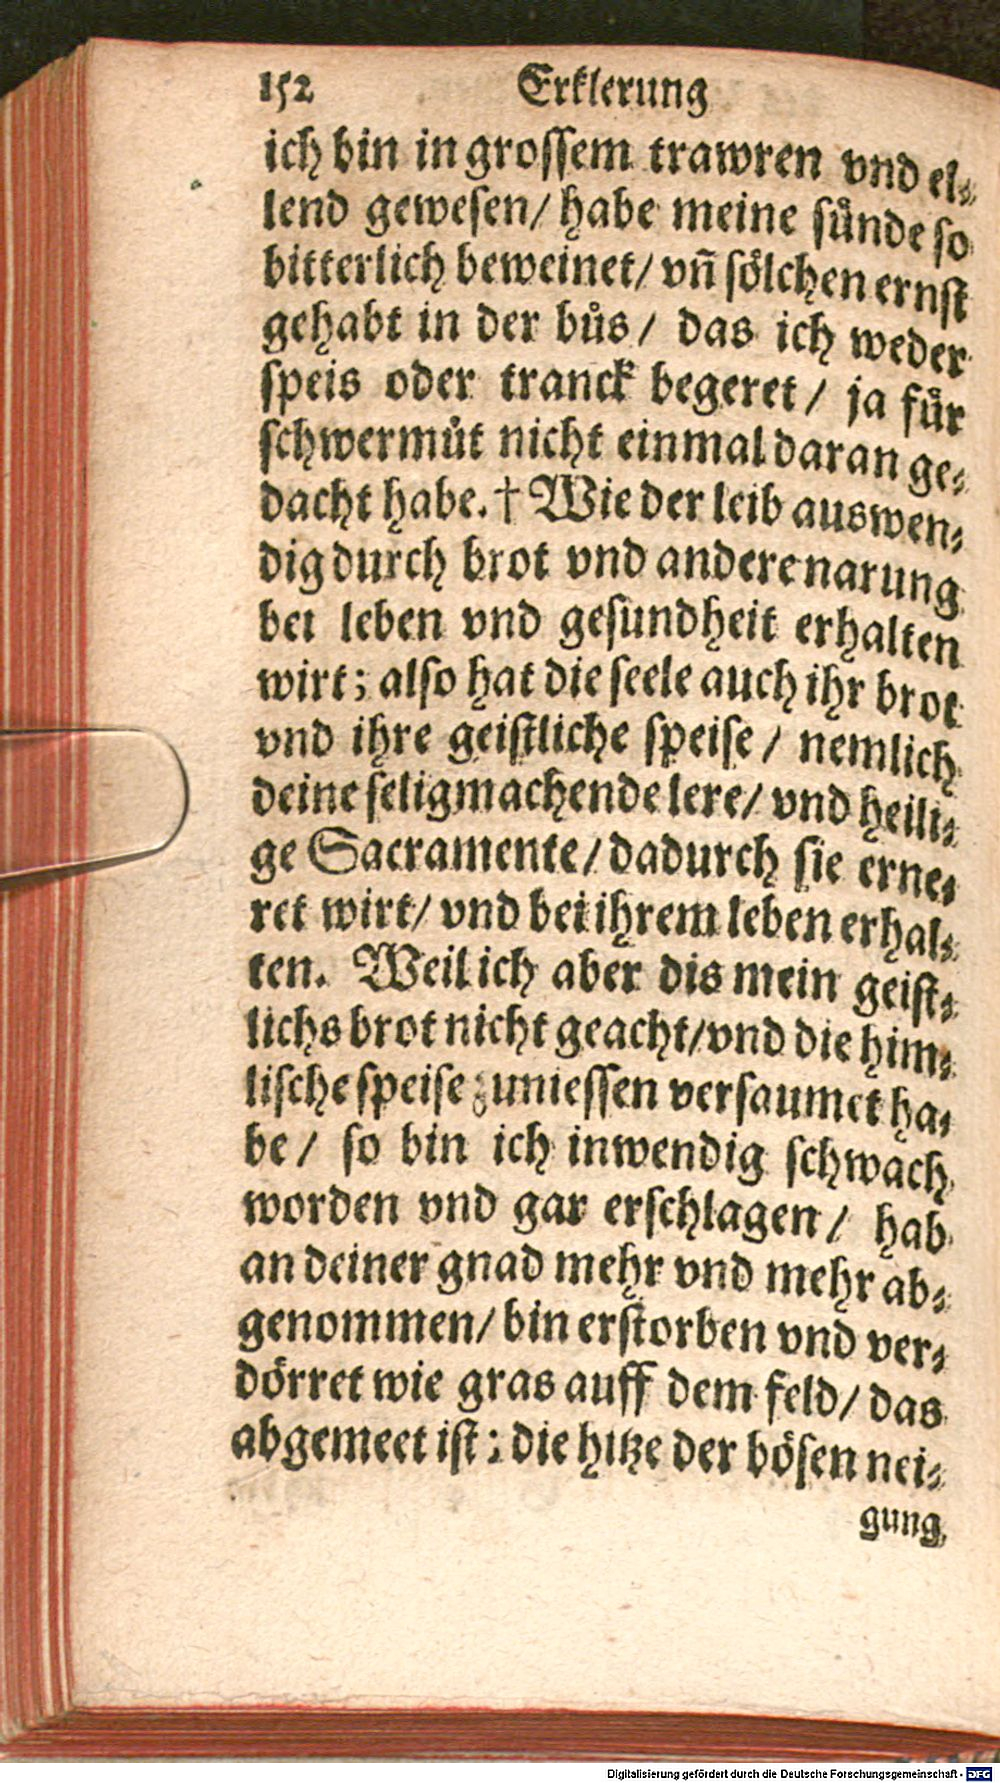 152 Erklerung
ich bin in grossem trawren vnd el⸗
lend gewesen/ habe meine sünde so
bitterlich beweinet/ vñ sölchen ernst
gehabt in der bůs/ das ich weder
speis oder tranck begeret/ ja für
schwermůt nicht einmal daran ge⸗
dacht habe. † Wie der leib auswen⸗
dig durch brot vnd andere narung
bei leben vnd gesundheit erhalten
wirt; also hat die seele auch ihr brot
vnd ihre geistliche speise/ nemlich
deine seligmachende lere/ vnd heili⸗
ge Sacramente/ dadurch sie erne⸗
ret wirt/ vnd bei ihrem leben erhal⸗
ten. Weil ich aber dis mein geist⸗
lichs brot nicht geacht/ vnd die him⸗
lische speise zuniessen versaumet ha⸗
be/ so bin ich inwendig schwach
worden vnd gar erschlagen/ hab
an deiner gnad mehr vnd mehr ab⸗
genommen/ bin erstorben vnd ver⸗
dörret wie gras auff dem feld/ das
abgemeet ist; die hitze der bösen nei⸗
gung
Digitalisierung gefördert durch die Deutsche Forschungsgemeinschaft - DFG